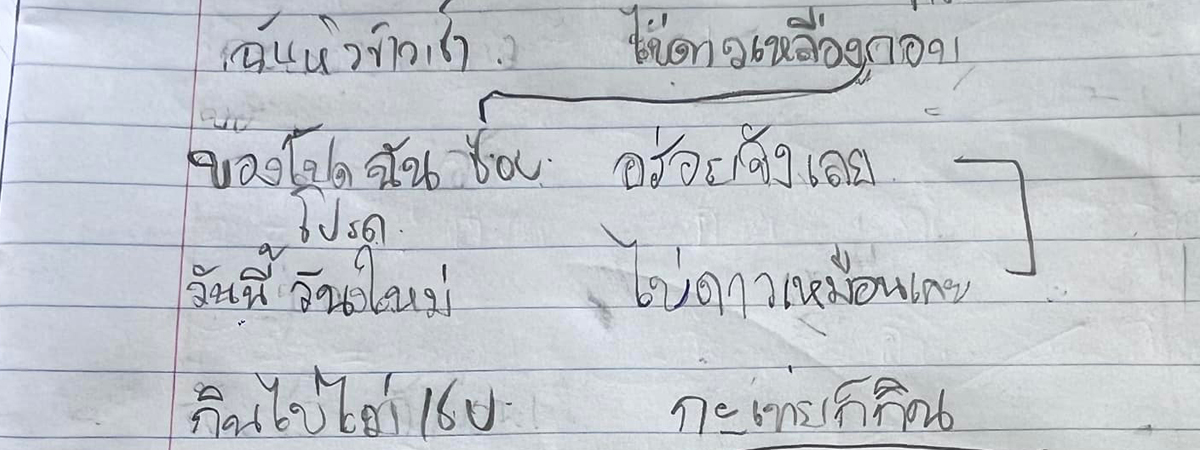 ฉันหิวข้าวเช้า ไข่ดาวเหลืองกรอบ
ของโปด ฉัน ชอบ อร่อยจังเลย
โปรด
วันนี้ วันใหม่ ไข่ดาวเหมือนเคย
กินไข่ กะเทยก็กิน